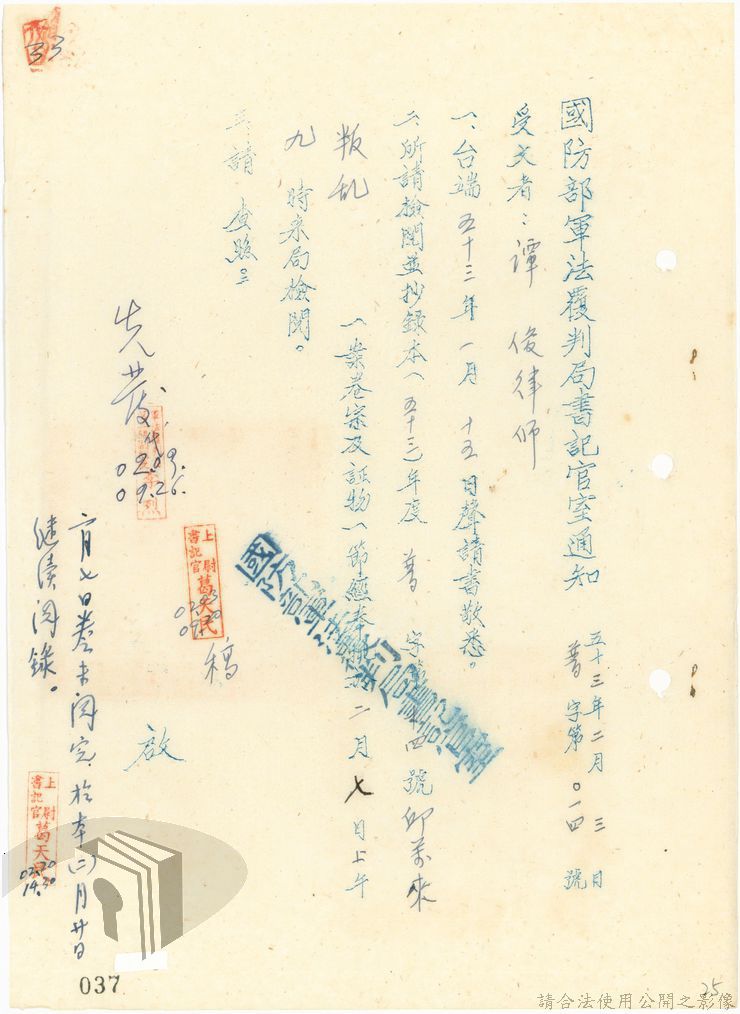 國防部軍法覆判局書記官室通知
五十三年二月三日
普字第〇一四號
受文者：譚俊律師
一、台端五十三年一月十五日聲請書敬悉。
二、所請檢閱並抄錄本（五十三）年度普字第〇一四號邱萬來
叛乱（案卷宗及証物）一節應奉 二月七日上午
九時来局檢閱。
三、請查照。
國防部軍法覆判局書記官室
啟
稿
上尉書記官葛天民
先發
代
0209.
09.26.
二月七日卷未閱完，於本(二)月廿日
继续閱錄。
上尉書記官葛天民
0220
14.30
33
037
25
請合法使用公開之影像